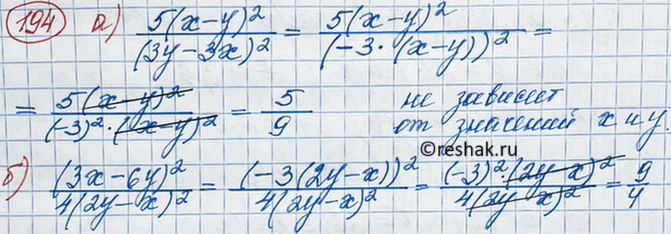 194 а) 5(x-y)²/(3y-3x)² = 5(x-y)²/(-3·(x-y))² =
= 5(x-y)²/(-3)²·(x-y)² = 5/9 не зависит
от значений x и y.
©reshak.ru
б) (3x-6y)²/4(2y-x)² = (-3(2y-x))²/4(2y-x)² = (-3)²·(2y-x)²/4(2y-x)² = 9/4